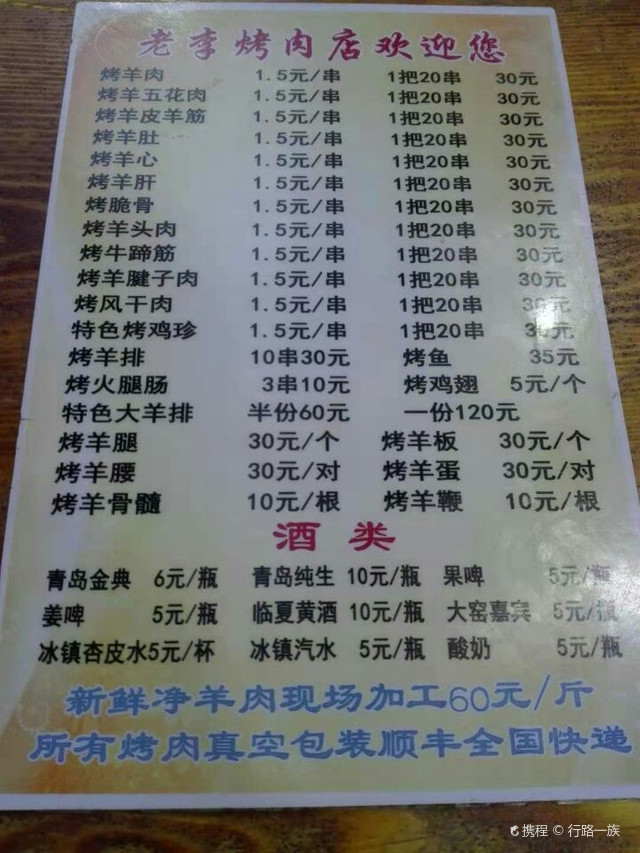 老李烤肉店欢迎您
烤羊肉 1.5元/串 1把20串 30元
烤羊五花肉 1.5元/串 1把20串 30元
烤羊皮羊筋 1.5元/串 1把20串 30元
烤羊肚 1.5元/串 1把20串 30元
烤羊心 1.5元/串 1把20串 30元
烤羊肝 1.5元/串 1把20串 30元
烤脆骨 1.5元/串 1把20串 30元
烤羊头肉 1.5元/串 1把20串 30元
烤牛蹄筋 1.5元/串 1把20串 30元
烤羊腱子肉 1.5元/串 1把20串 30元
烤风干肉 1.5元/串 1把20串 30元
特色烤鸡珍 1.5元/串 1把20串 30元
烤羊排 10串30元 烤鱼 35元
烤火腿肠 3串10元 烤鸡翅 5元/个
特色大羊排 半份60元 一份120元
烤羊腿 30元/个 烤羊板 30元/个
烤羊腰 30元/对 烤羊蛋 30元/对
烤羊骨髓 10元/根 烤羊鞭 10元/根
酒类
青岛金典 6元/瓶 青岛纯生 10元/瓶 果啤 5元/瓶
姜啤 5元/瓶 临夏黄酒 10元/瓶 大窑嘉宾 5元/瓶
冰镇杏皮水5元/杯 冰镇汽水 5元/瓶 酸奶 5元/瓶
新鲜净羊肉现场加工60元/斤
所有烤肉真空包装顺丰全国快递
携程 © 行路一族